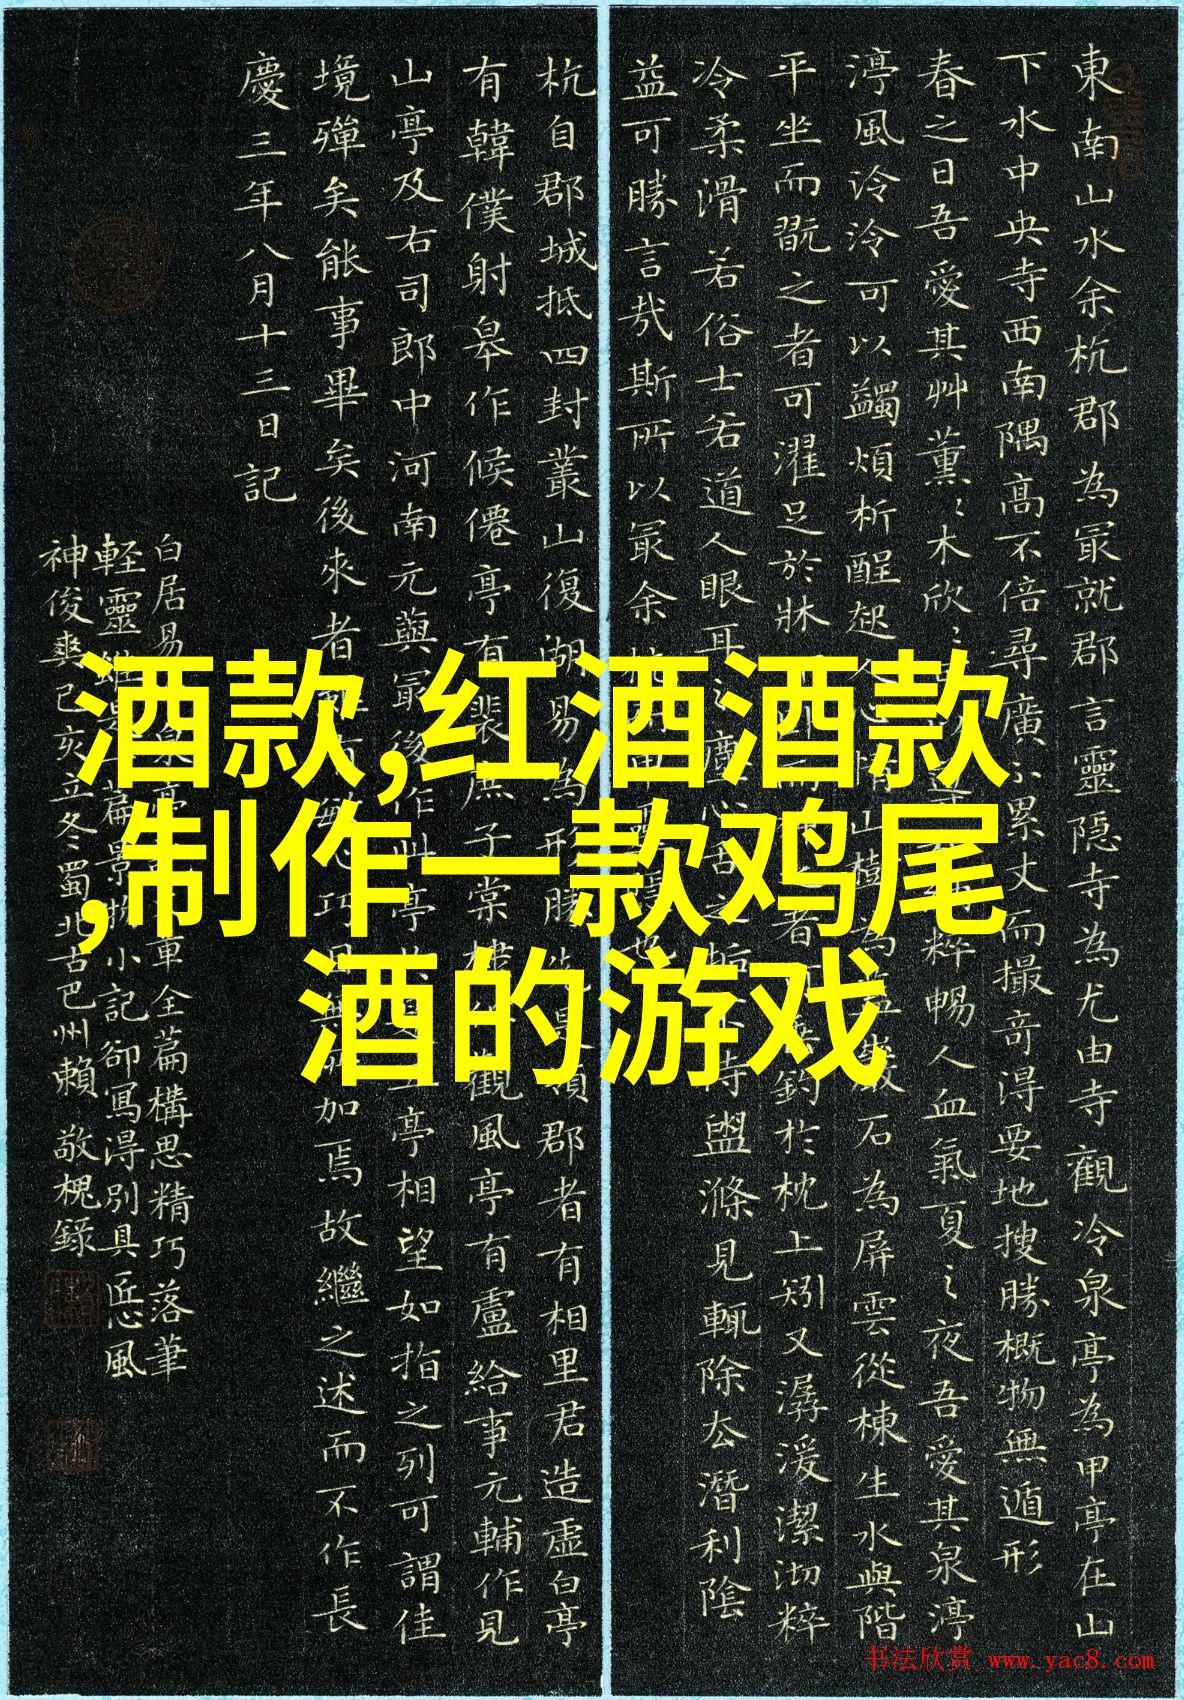 東南山水余杭郡為冣就郡言靈隐寺為尤由寺觀冷泉亭為甲亭在山
下水中央寺西南隅高不倍尋廣不累丈而撮竒得要地搜勝概物無遁形
春之日吾愛其艸薰〻木欣〻粹暢人血氣夏之夜吾愛其泉渟
渟風泠泠可以蠲煩析酲起人心情山樹為石為屏雲從棟生水與階
平坐而翫之者可濯足於牀者釣於枕上矧又潺湲潔沏粹
冷柔滑若俗士若道人眼耳之塵心舌之待盥滌見輒除去潛利陰
益可勝言哉斯所以冣余
杭自郡城抵四封叢山復湖易為形勝領郡者有相里君造虛白亭
有韓僕射皋作候僊亭有裴庶子棠觀風亭有盧給事元輔作見
山亭及右司郎中河南元藇冣後作此亭亭相望如指之列可謂佳
境殫矣能事畢矣後來者加焉故繼之述而不作長
慶三年八月十三日記
白居易全篇構思精巧落筆
輕靈景物小記卻寫得别具匠心風
神俊爽己亥立冬蜀北古巴州賴敬槐錄
酒款,红酒酒款
,制作一款鸡尾
酒的游戏
书法欣赏 www.yac8.com